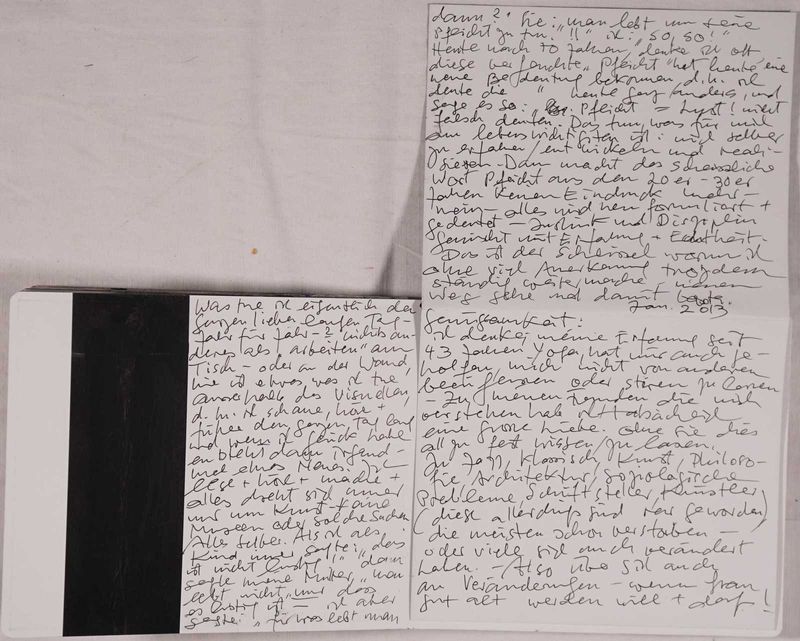 Was tue ich eigentlich den
ganzen lieben langen Tag -
Jahr für Jahr - ? nichts an-
deres als "arbeiten" am
Tisch - oder an der Wand,
nie ist etwas, was ich tue,
ausserhalb des Visuellen,
d.h. ich schaue, höre +
fühle den ganzen Tag lang
und wenn ich Glück habe
entsteht dann irgend-
mal etwas Neues. Ich
lese + höre + mache +
alles dreht sich immer
nur um Kunst - keine
Museen oder solche Sachen
Alles selber. Als ich als
Kind immer sagte: "das
ist nicht lustig!" dann
sagte meine Mutter, "man
lebt nicht nur dass
es lustig ist - ich aber
sagte: "für was lebt man
dann?" Sie: "man lebt um seine
Pflicht zu tun!!" ich: "so, so!"
Heute nach 70 Jahren, denke ich oft
diese "Pflicht" hat heute eine
neue Bedeutung bekommen, d.h. ich
deute die " heute ganz anders, und
sage es so: " Pflicht = Lust! nicht
falsch deuten. Das tun, was für mich
am lebenswichtigsten ist: mich selber
zu erfahren/entwickeln und reali-
sieren - Dann macht das scheussliche
Wort Pflicht aus den 20er - 30er
Jahren keinen Eindruck mehr -
nein, alles wird neu formuliert +
gedeutet - Instinkt und Disziplin
gemischt mit Erfahrung +
Das ist der Schlüssel warum ich
ohne viel Anerkennung trotzdem
ständig weitermache meinen
Weg gehe und damit
Jan. 2013
Genügsamkeit:
ich denke, meine Erfahrung seit
43 Jahren Yoga, hat mir auch ge-
holfen, mich nicht von anderen
beeinflussen oder stören zu lassen
- Zu meinen Freunden die mich
verstehen hab ich
eine grosse Liebe. ohne sie dies
allzu fest wissen zu lassen.
Zu Jazz, Klassisch, Kunst, Philoso-
fie, Architektur, soziologische
Probleme, Schriftsteller, Künstler
(diese allerdings sind rar geworden)
die meisten schon verstorben -
oder viele sich auch verändert
haben. - Also übe sich auch
an Veränderungen - wenn frau
gut alt werden will + darf!